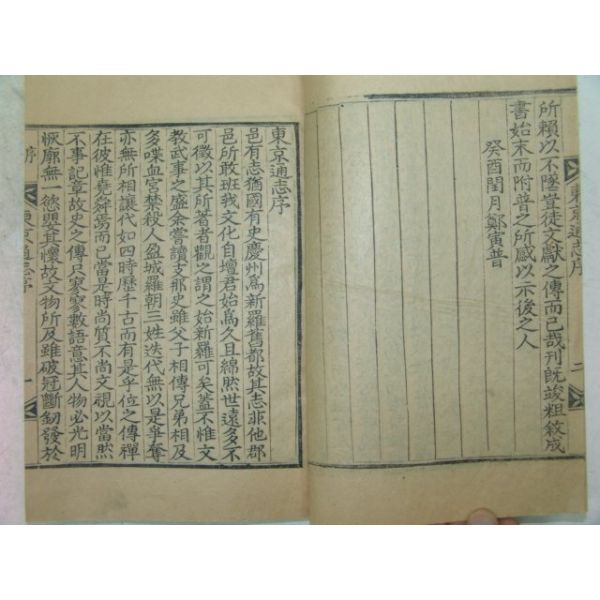 東京通志序 二
所賴以不墜豈徒文獻之傳而已哉刊旣竣粗敘成
書始末而附普之所感以示後之人
癸酉閏月鄭寅普
東京通志序
邑有志猶國有史慶州爲新羅舊都故其志非他郡
邑所敢班我文化自壇君始爲久且綿然世遠多不
可徵以其所著者觀之謂之始新羅可矣蓋不惟文
敎武事之盛余嘗讀支那史雖父子相傳兄弟相及
多喋血宮禁殺人盈城羅朝三姓迭代無以是爭奪
亦無所相讓代如四時歷千古而有是乎位之傳禪
在彼惟堯舜焉而已當是時尚質不尚文視以當然
不事記章故史之傳只寥寥數語意其人物必光明
恢廓無一慾嬰其懷故文物所及雖破冠斷釰發於
序 東京通志序 一